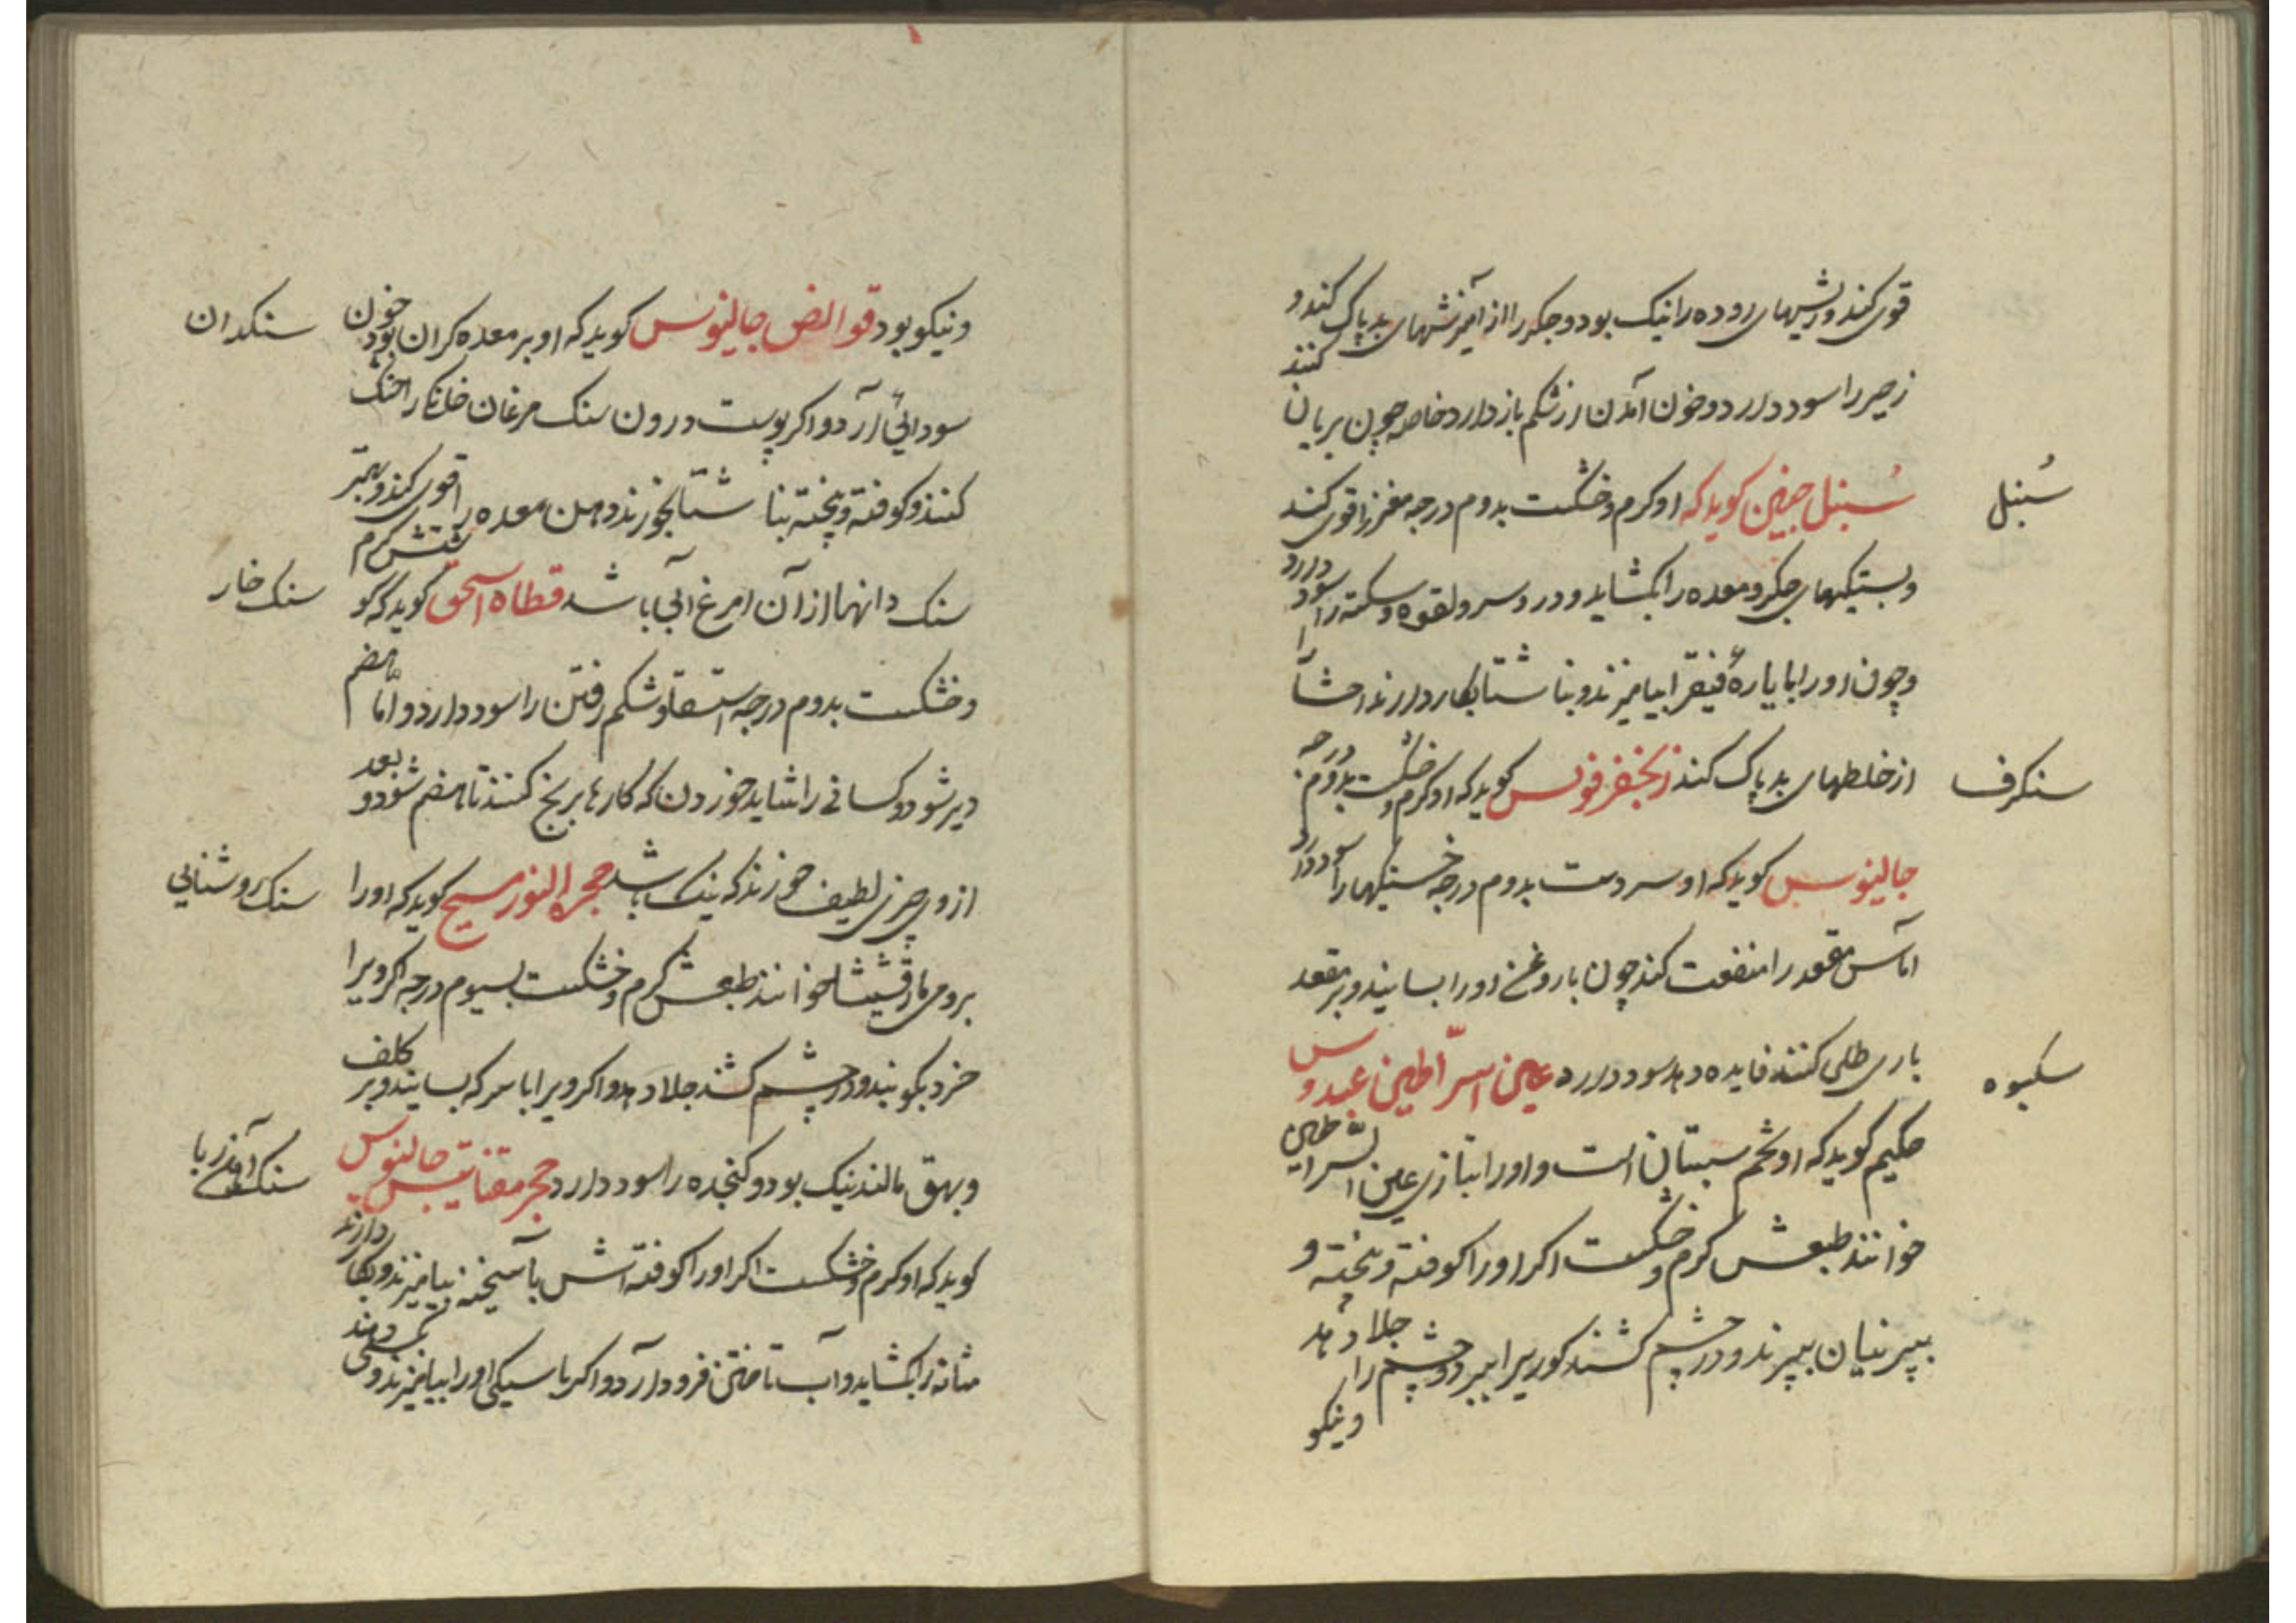 قوی کند و ریشهای روده را نیک بود و جکر را از آمیزشهای بد پاک کند و
زحیر را سود دارد و خون آمدن از شکم باز دارد خاصه چون بریان کنند
سُنبل
سُنبل حنین کوید که او کرم و خشکست بدوم درجه مغز را قوی کند
و بستیکهای جکر و معده را بکشاید و درد سر و لقوه و سکته را سود دارد
و چون او را با یارهٔ فیقرا بیامیزند و بنا شتا بکار دارند احشا را
سنکرف
از خلطهای بد پاک کند زنجفر فولس کوید که او کرم و خشکست بدوم درجه
جالینوس کوید که او سردست بدوم درجه خستیکها را سود دارد
آماس مقعد را منفعت کند چون با روغن او را بسایند و بر مقعد
سکبوه
باری طلی کنند فایده دهد سود دارد عین السّراطین عبدوس
حکیم کوید که او تخم سبستان است و او را بتازی عین السّراطین
خوانند طبعش کرم و خشکست اکر او را کوفته و بیخته و
بپرنیان بپزند و در چشم کشند کوری را ببرد و چشم را جلا دهد
و نیکو
سنکدان
و نیکو بود قوالض جالینوس کوید که او بر معده کران بود خون
سودائی آرد و اکر پوست درون سنک مرغان خانکی را خشک
کنند و کوفته و بیخته بنا شتا بخورند دهن معده را قوی کند و بهتر
سنک خار
سنک دانها از آن مرغ آبی باشد قطاه اسحق کوید که کوشتش کرم
و خشکست بدوم درجه استسقا و شکم رفتن را سود دارد و امّا هضم
دیر شود و کسانی را شاید خوردن که کارها برنج کنند تا هضم شود و بعد
سنک روشنایی
از وی چیزی لطیف خورند که نیک باشد حجر النور مسیح کوید که او را
برومی مارقشیشا خوانند طبعش کرم و خشکست بسیوم درجه اکر ویرا
خرد بکوبند و در چشم کشند جلا دهد و اکر ویرا با سرکه بسایند و بر کلف
سنک آهن ربا
و بهق مالند نیک بود و کنجده را سود دارد حجر مقناتیس جالینوس
کوید که او کرم و خشکست اکر او را کوفته آتش با بیامیزند و بکار دارند
مثانه را بکشاید و آب تاختن فرود آرد و اکر با سیکی او را بیامیزند و بکسی دهند